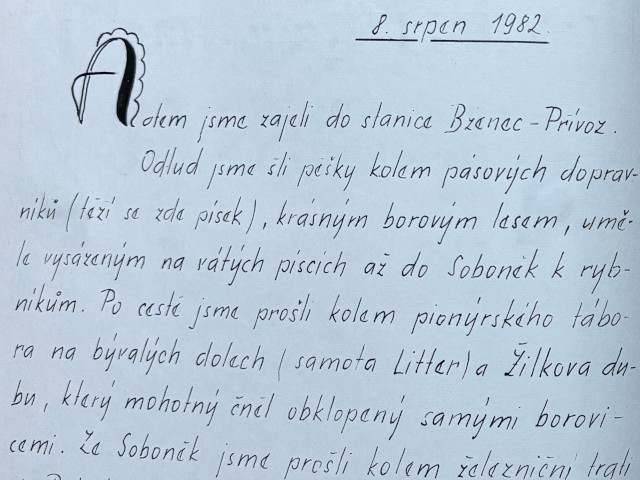 8. srpen 1982
Autem jsme zajeli do stanice Bzenec-Přívoz.
Odtud jsme šli pěšky kolem pásových doprav-
níků (těží se zde písek), krásným borovým lesem, umě-
le vysázeným na vátých píscích až do Soboněk k ryb-
níkům. Po cestě jsme prošli kolem pionýrského tábo-
ra na bývalých dolech (samota Litter) a Žilkova du-
bu, který mohutný čněl obklopený samými borovi-
cemi. Ze Soboněk jsme prošli kolem železniční trati